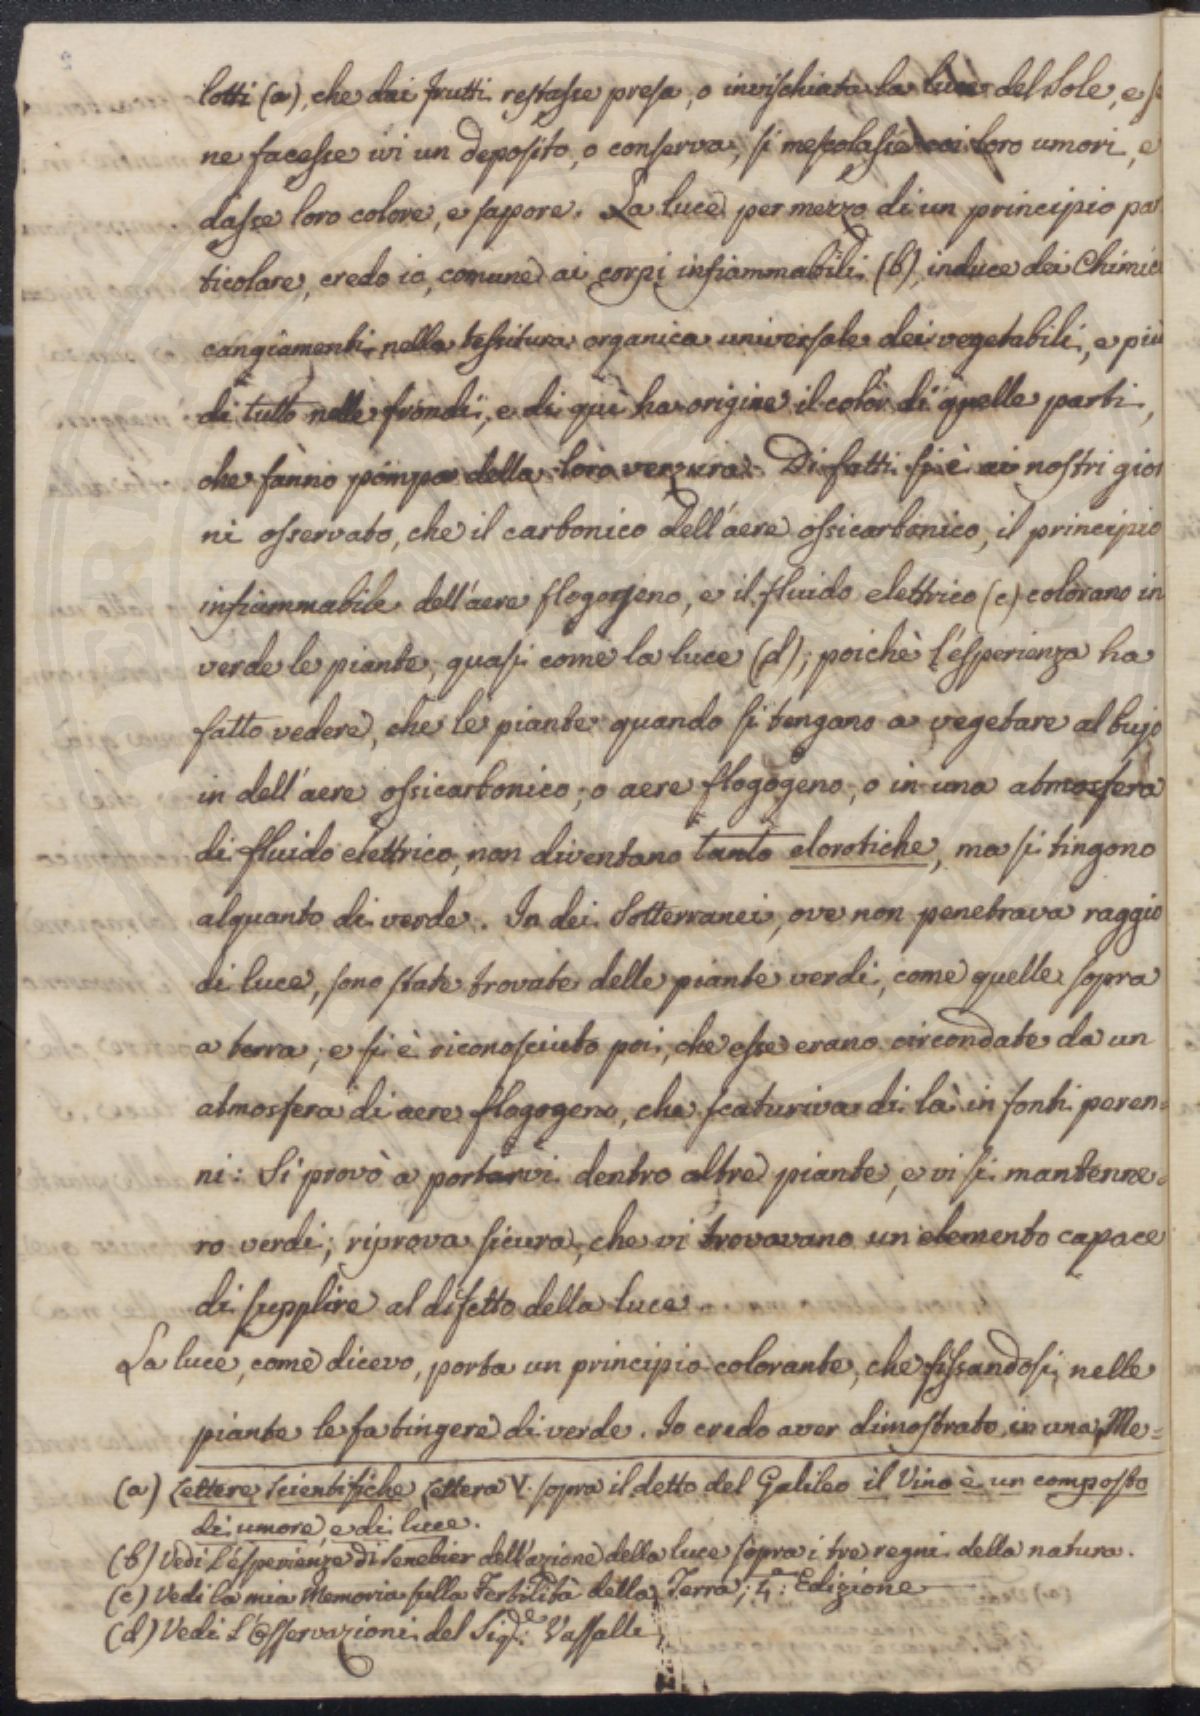 lotti (a), che dai frutti restasse presa, o invischiata la luce del Sole, e se
ne facesse ivi un deposito, o conserva, si mescolasse coi loro umori, e
dasse loro colore, e sapore. La luce per mezzo di un principio par
ticolare, credo io, comune ai corpi infiammabili (b), induce dei Chimici
cangiamenti nella tessitura organica universale dei vegetabili, e più
di tutto nelle frondi, e di quì ha origine il color di quelle parti,
che fanno pompa della loro verzura. Di fatti si è ai nostri gior
ni osservato, che il carbonico dell'aere ossicarbonico, il principio
infiammabile dell'aere flogogeno, e il fluido elettrico (c) colorano in
verde le piante, quasi come la luce (d); poichè l'esperienza ha
fatto vedere, che le piante quando si tengano a vegetare al bujo
in dell'aere ossicarbonico, o aere flogogeno, o in una atmosfera
di fluido elettrico, non diventano tanto clorotiche, ma si tingono
alquanto di verde. In dei Sotterranei, ove non penetrava raggio
di luce, sono state trovate delle piante verdi, come quelle sopra
a terra; e si è riconosciuto poi, che esse erano circondate da un
atmosfera di aere flogogeno, che scaturiva di là in fonti peren=
ni: Si provò a portarvi dentro altre piante, e vi si mantenne=
ro verdi; riprova sicura, che vi trovavano un elemento capace
di supplire al difetto della luce.
La luce, come dicevo, porta un principio colorante, che fissandosi nelle
piante le fa tingere di verde. Io credo aver dimostrato in una Me=
(a) Lettere scientifiche Lettera V. sopra il detto del Galileo il Vino è un composto
di umore, e di luce.
(b) Vedi l'esperienze di Senebier dell'azione della luce sopra i tre regni della natura.
(c) Vedi la mia Memoria sulla Fertilità della Terra; 4.a Edizione
(d) Vedi l'Osservazioni del Sig.e Vassalli